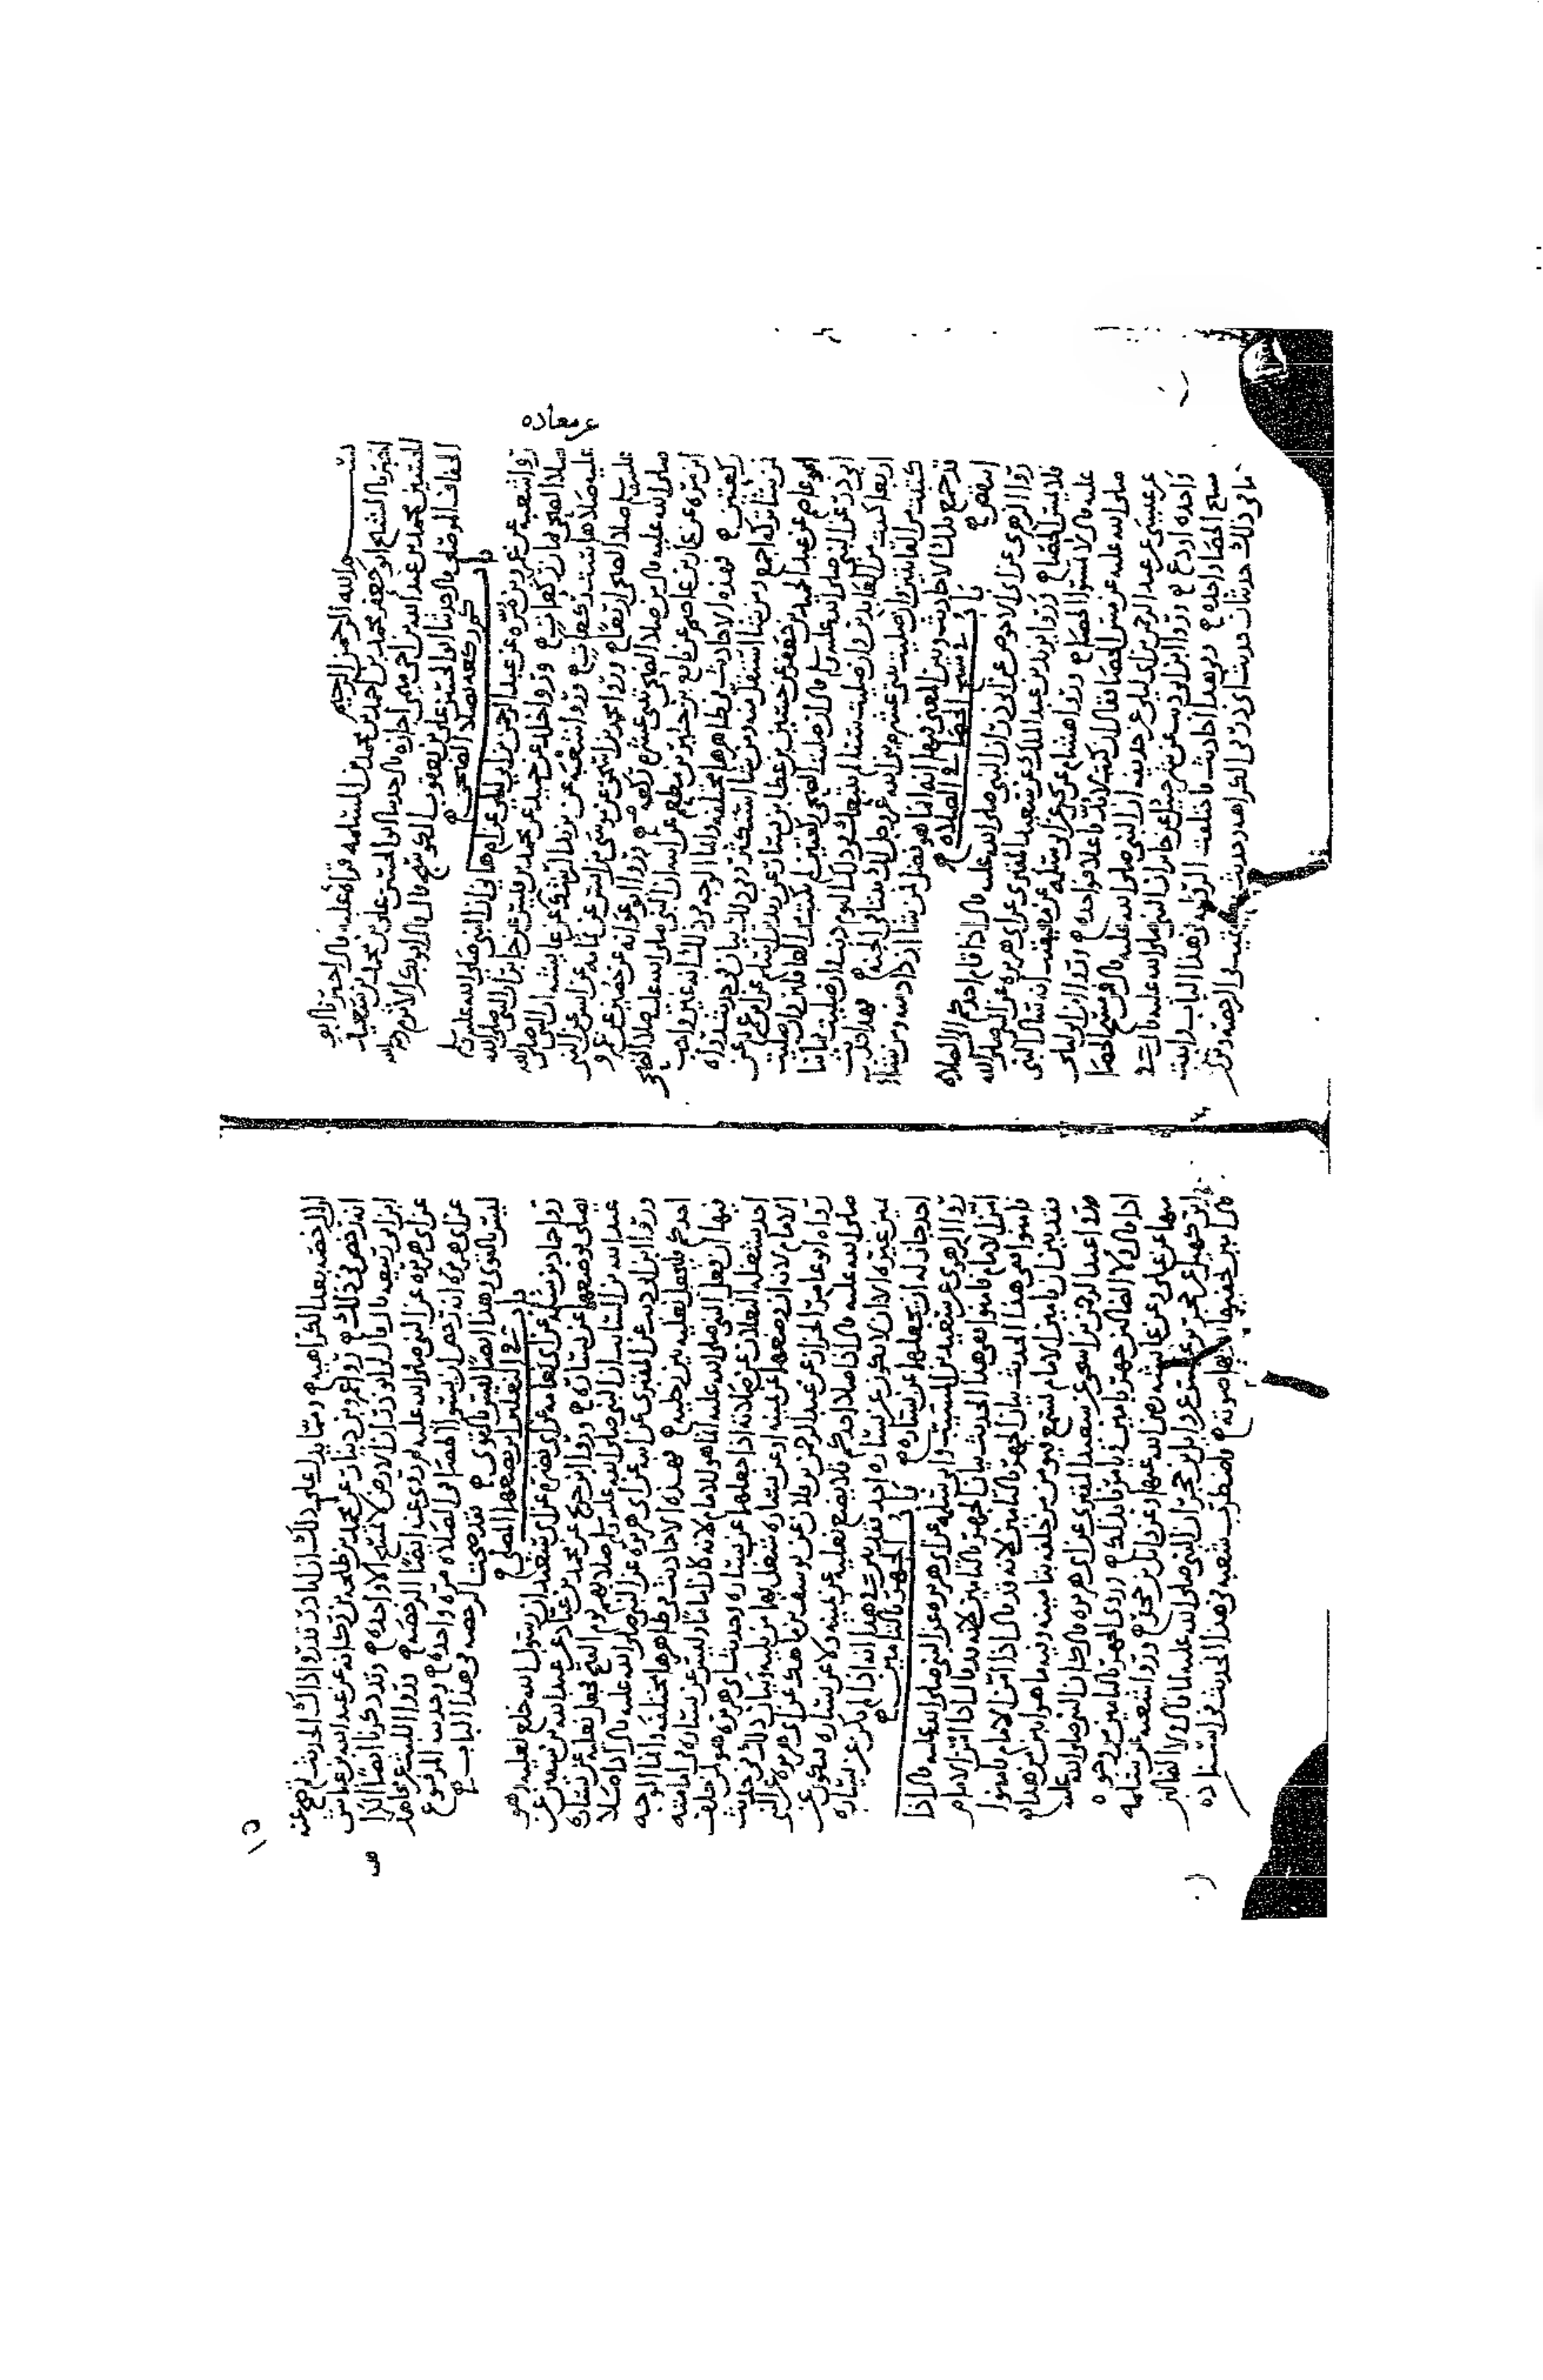 بسم الله الرحمن الرحيم
اخبرنا الشيخ ابو جعفر محمد بن احمد بن محمد بن المسلمه قراه عليه قال اخبرنا ابو
الحسين محمد بن عبد الله بن اخي ميمي اجازه قال حدثنا ابو الحسن علي بن محمد بن سعيد
الخفاف الموصلي قال حدثنا ابو الحسن علي بن يعقوب الكوسج قال قال ابو بكر الاثرم رحمه الله
باب كم ركعه تصلا الضحى
روا شعبه عن عمرو بن مره عن عبد الرحمن بن ابي ليلى عن ام هاني ان النبي صلى الله عليه وسلم
صلا الضحى ثمان ركعات وروا خالد عن حميد عن محمد بن قيس عن جابر ان النبي صلى الله
عليه صلاها ست ركعات وروا شعبه عن يزيد الرشك عن معاده عن عايشه ان النبي صلى الله
عليه وسلم صلا الضحى اربعا وروا محمد بن اسحق عن موسى بن انس عن ثمامه عن انس عن النبي
صلى الله عليه قال من صلا الضحى ثنتي عشره ركعه وروا ابو عوانه عن حصين عن عمرو
ابن مره عن عمار بن عاصم عن نافع بن جبير بن مطعم عن ابيه ان النبي صلى الله عليه صلا الضحى
ركعتين فهذه الاحاديث في ظاهرها مختلفه وانما الوجه في ذلك انه غير واجب
لمن شا تركه اجمع ومن شا استقل منه ومن شا استكثر وفي ذلك بيان في حديث رواه
ابو عاصم عن عبد الحميد بن جعفر عن حسين بن عطا بن يسار عن زيد بن اسلم عن ابن عمر عن
ابي ذر عن النبي صلى الله عليه وسلم قال ان صليت الضحى ركعتين لم تكتب من الغافلين وان صليت
اربعا كتبت من العابدين وان صليت ستا لم يتبعك في ذلك اليوم ذنب وان صليت ثمانيا
كتبت من القانتين وان صليت ثنتي عشره بنى الله عز وجل لك بيتا في الجنه فهذا حديث
قد جمع تلك الاحاديث وبين المعنى فيها انه انما هو فضل لمن شا ازداد منه ومن شا
انتقص
باب في مسح الحصا في الصلاه
روا الزهري عن ابي الاحوص عن ابي ذر ان النبي صلى الله عليه قال اذا قام احدكم الى الصلاه
فلا يمس الحصا وروا يزيد بن عبد الملك عن سعيد المقبري عن ابي هريره عن النبي صلى الله
عليه قال لا تمسوا الحصا وروا هشام عن يحيى عن ابي سلمه عن معيقيب انه سال النبي
صلى الله عليه عن مس الحصا فقال ان كنت لا بد فاعلا فواحده وروا ابن ابي ليلى
عن عيسى عن عبد الرحمن بن ابي ليلى عن حذيفه ان النبي صلى الله عليه قال في مسح الحصا
واحده او دع وروا ابن ابي ذيب عن شرحبيل عن جابر ان النبي صلى الله عليه قال في
مسح الحصا واحده وبهذا احاديث فاختلفت الروايه في هذا الباب وابينت
ما في ذلك حديثان حديث ابي ذر في الكراهه وحديث معيقيب في الرخصه ونرى
ان الرخصه بعد الكراهيه ومما يدل على ذلك ان ابا ذر قد روا ذاك الحديث ثم صح عنه
انه ترخص في ذلك روا عمرو بن دينار عن محمد بن طلحه بن ركانه عن عبد الله بن عياش
ابن ابي ربيعه قال قال لي ابو ذر ان الارض لا تمسح الا واحده وقد ذكرنا ايضا الكراهه
عن ابي هريره عن النبي صلى الله عليه ثم روي عنه ايضا الرخصه وروا الليث عن مجاهد
عن ابي هريره انه ترخص ان يسوا الحصا في الصلاه مره واحده وحديثه المرفوع
ليس بالقوي وهذا ايضا ليس بالقوي فقد صحت الرخصه في هذا الباب
باب في النعلين اين يضعهما المصلي
روا حماد بن سلمه عن ابي نعامه عن ابي نضره عن ابي سعيد ان رسول الله خلع نعليه وهو
يصلي فوضعهما عن يساره وروا ابن جريج عن محمد بن عباد عن عبد الله بن سفين عن
عبد الله بن السايب ان النبي صلى الله عليه وسلم صلا بهم يوم الفتح فجعل نعليه عن يساره
وروا ابن ابي ذيب عن المقبري عن ابيه عن ابي هريره عن النبي صلى الله عليه قال اذا صلا
احدكم فليجعل نعليه بين رجليه فهذه الاحاديث في ظاهرها مختلفه وانما الوجه
فيها ان فعل النبي صلى الله عليه انما هو للامام لانه كان اماما وليس عن يساره في امامته
احد يشغله النعلان عن صلاته اذا جعلهما عن يساره وحديث ابي هريره هو لمن خلف
الامام لانه ان وضعهما عن يمينه او عن يساره شغل بهما من يليه وبيان ذلك في حديث
رواه ابو عامر الخزاز عن عبد الرحمن بن فلان عن يوسف بن ماهك عن ابي هريره عن النبي
صلى الله عليه قال اذا صلا احدكم فلا يضع نعليه عن يمينه ولا عن يساره فتكون عن
يمين غيره الا ان لا يكون عن يساره احد فقد بين في هذا انه اذا لم يكن عن يساره
احد جاز له ان يجعلهما عن يساره
باب الجهر بالتامين
روا الزهري عن سعيد بن المسيب وابي سلمه عن ابي هريره عن النبي صلى الله عليه قال اذا
امن الامام فامنوا ففي هذا الحديث بيان الجهر بالتامين لانه قد قال اذا امن الامام
فامنوا
فقد بين ان تامين الامام يسمع فيومن من خلفه بتامينه وفيه ما هو ابين من هذا
روا عبد الرحمن بن اسحق عن سعيد المقبري عن ابي هريره قال كان النبي صلى الله عليه
اذا قال ولا الضالين جهر بامين ويامر بذلك وروي الجهر بالتامين من وجوه
منها عن علي وعن عايشه رضي الله عنها وعن وايل بن حجر وروا شعبه عن سلمه
ابن كهيل عن حجر عن علقمه عن وايل بن حجر ان النبي صلى الله عليه لما قال ولا الضالين
قال امين خفض بها صوته فاضطرب شعبه في هذا الحديث في اسناده